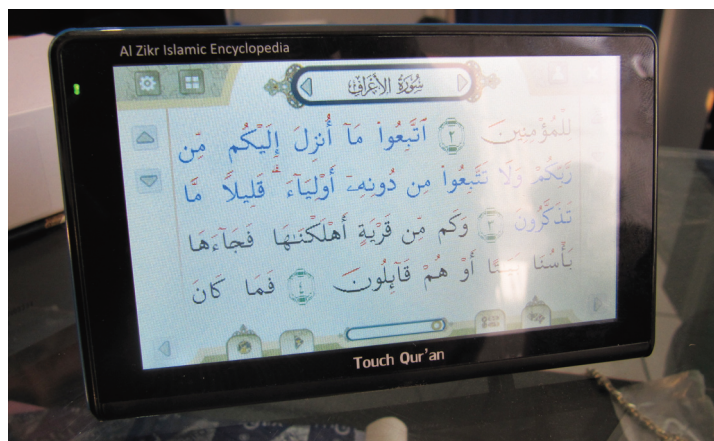 Al Zikr Islamic Encyclopedia
سُورَةُ الأَعْرَافِ
لِلْمُؤْمِنِينَ ٢ ٱتَّبِعُوا۟ مَآ أُنزِلَ إِلَيْكُم مِّن
رَّبِّكُمْ وَلَا تَتَّبِعُوا۟ مِن دُونِهِۦٓ أَوْلِيَآءَ ۗ قَلِيلًا مَّا
تَذَكَّرُونَ ٣ وَكَم مِّن قَرْيَةٍ أَهْلَكْنَـٰهَا فَجَآءَهَا
بَأْسُنَا بَيَـٰتًا أَوْ هُمْ قَآئِلُونَ ٤ فَمَا كَانَ
Touch Qur'an